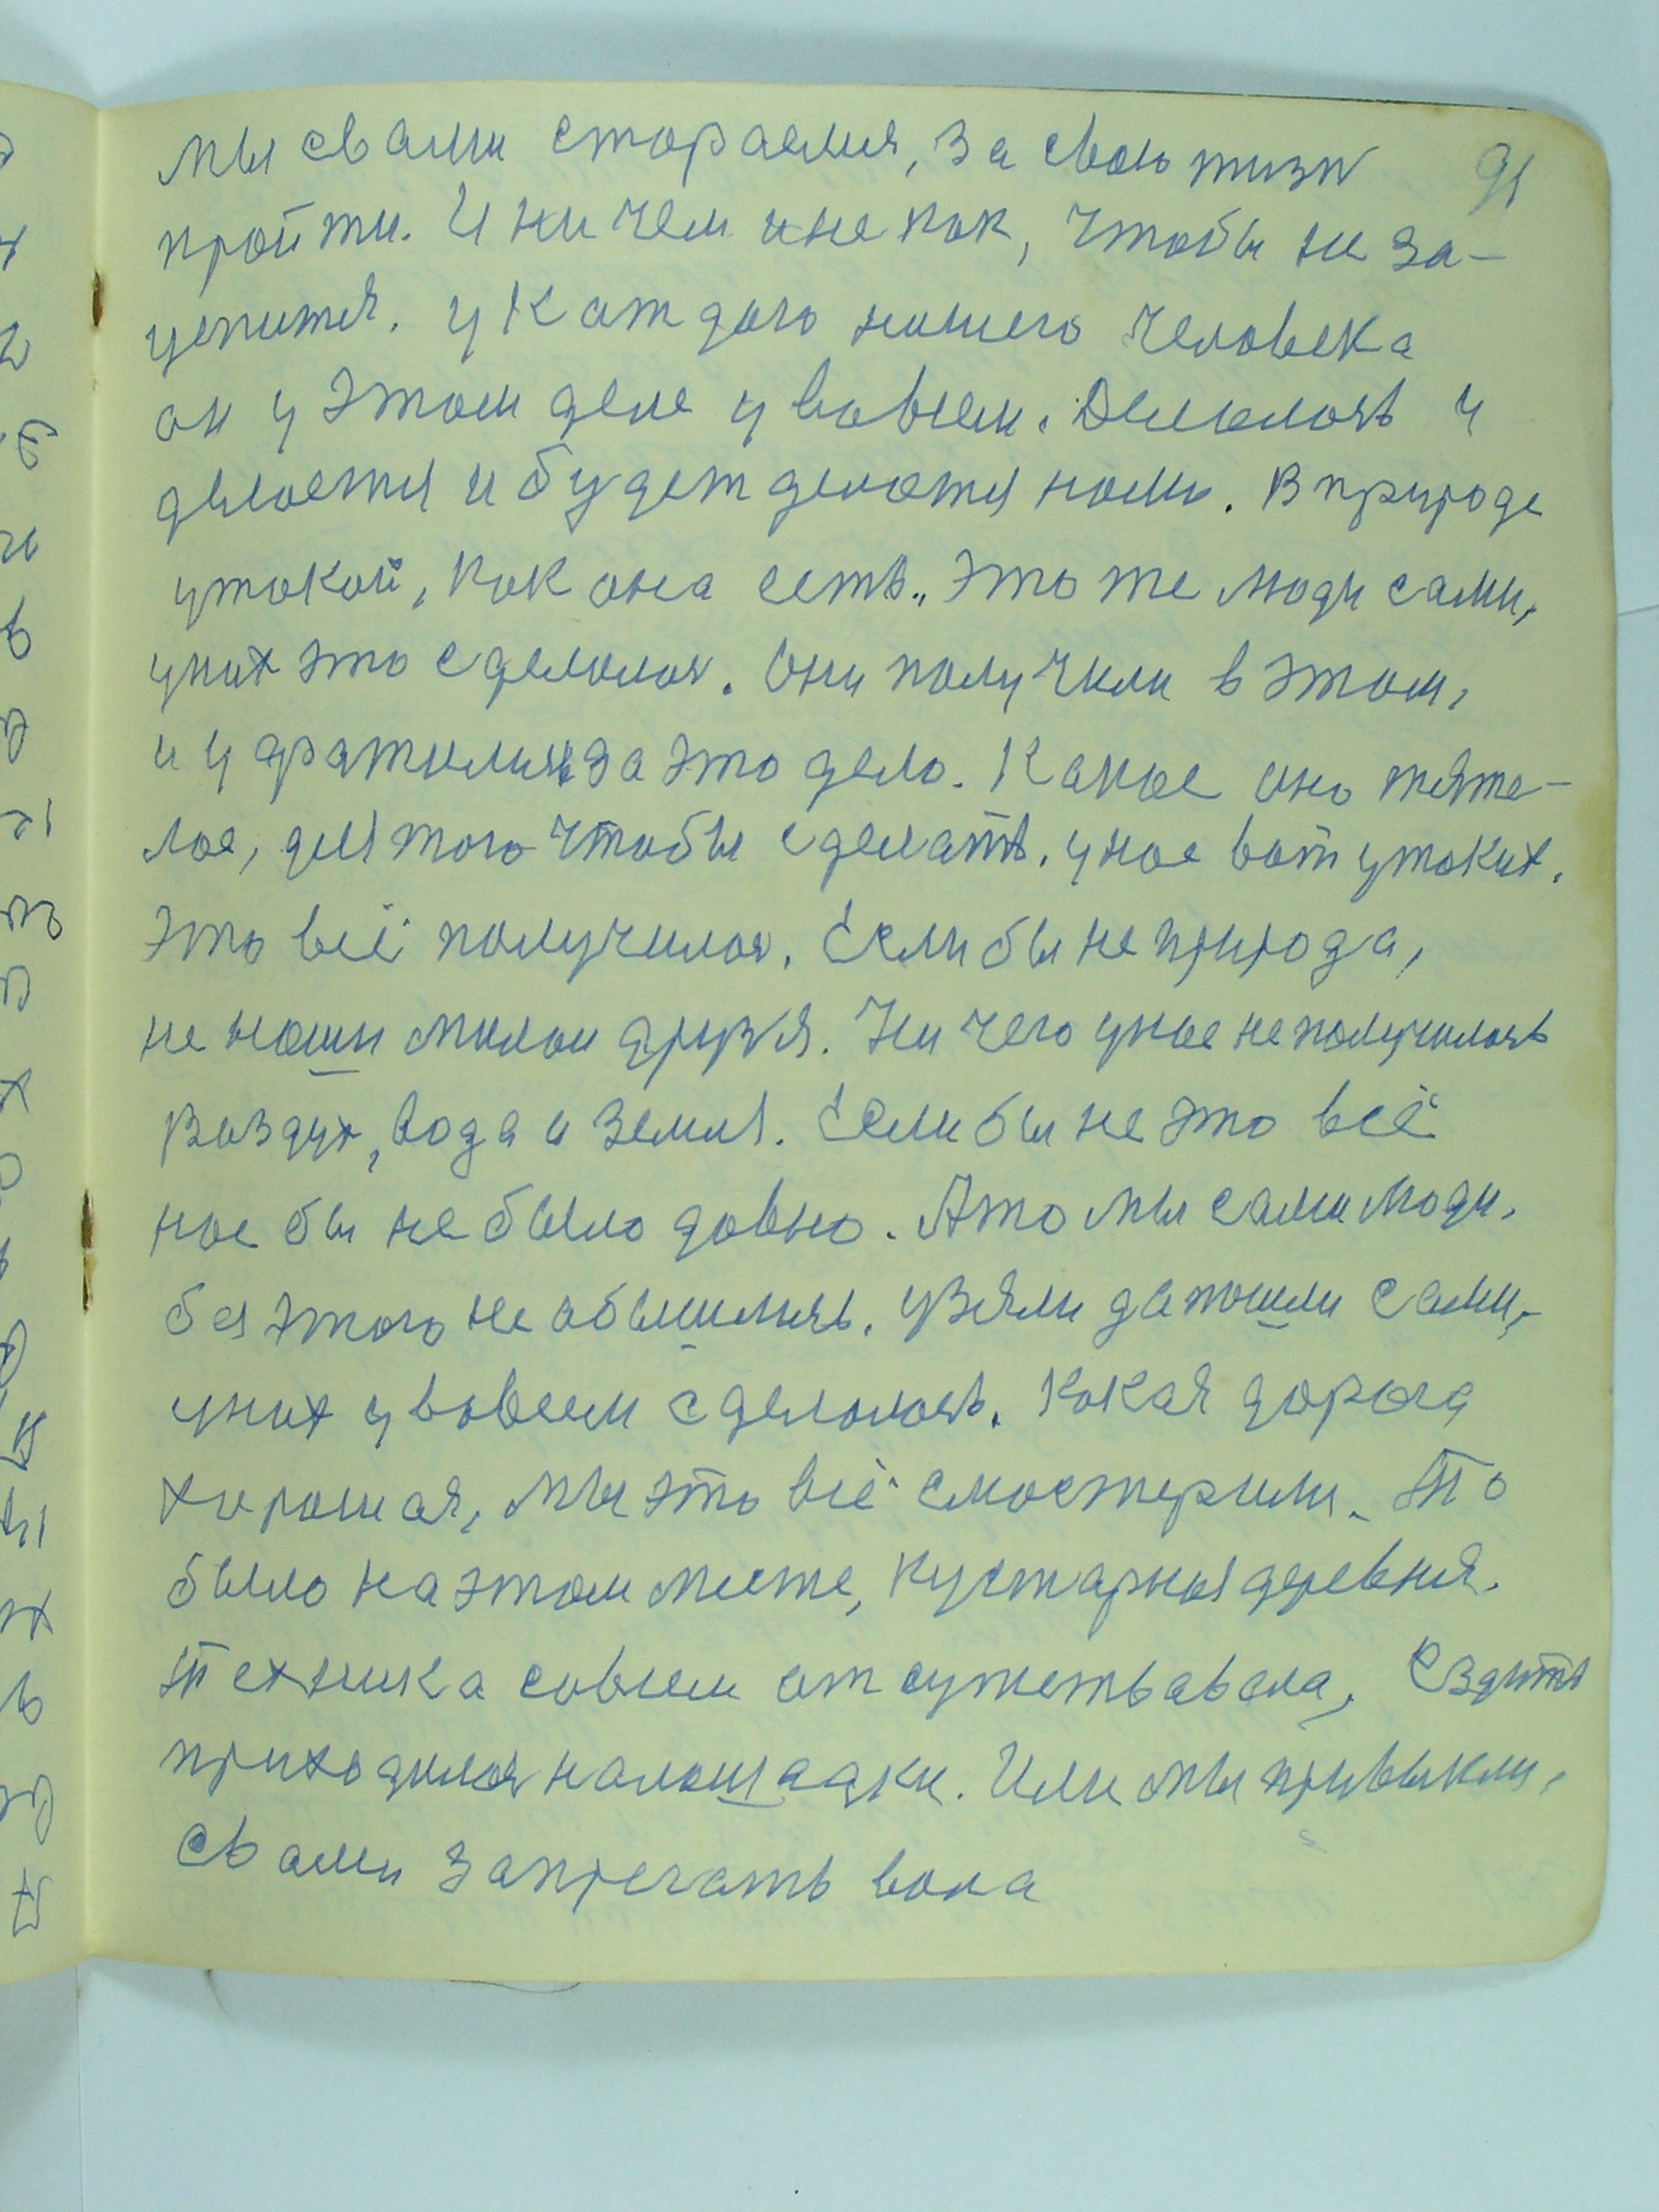 91
мы свами стораемся, за свою жизн
пройти. И ни чем и не как, чтобы не за-
цепится. у каждого нашего человека
он у этом деле у вовсем. Делалось и
делается и будет делается нами. В природе
утокой, как она есть,, это же люди сами,
уних это сделалоя. Они получили в этом,
и за это дело. Какое оно тяже-
лое, для того чтобы сделать. унас вот утоких.
это всё получилоя. Если бы не природа,
не наши милаи друзя. Ни чего унас не получилось
Воздух, вода и земля. Если бы не это всё
нас бы не было давно. Ато мы сами люди,
без этого не обышлись. узяли да пошли сами,
уних у вовсем сделалось. Какая дорога
хорошая, мы это всё смостерили. То
было на этом месте, кустарная деревня.
Техника совсем отсужетвавала, Ездить
приходилоя налошадки. Или мы привыкли,
Свами запрегать вола